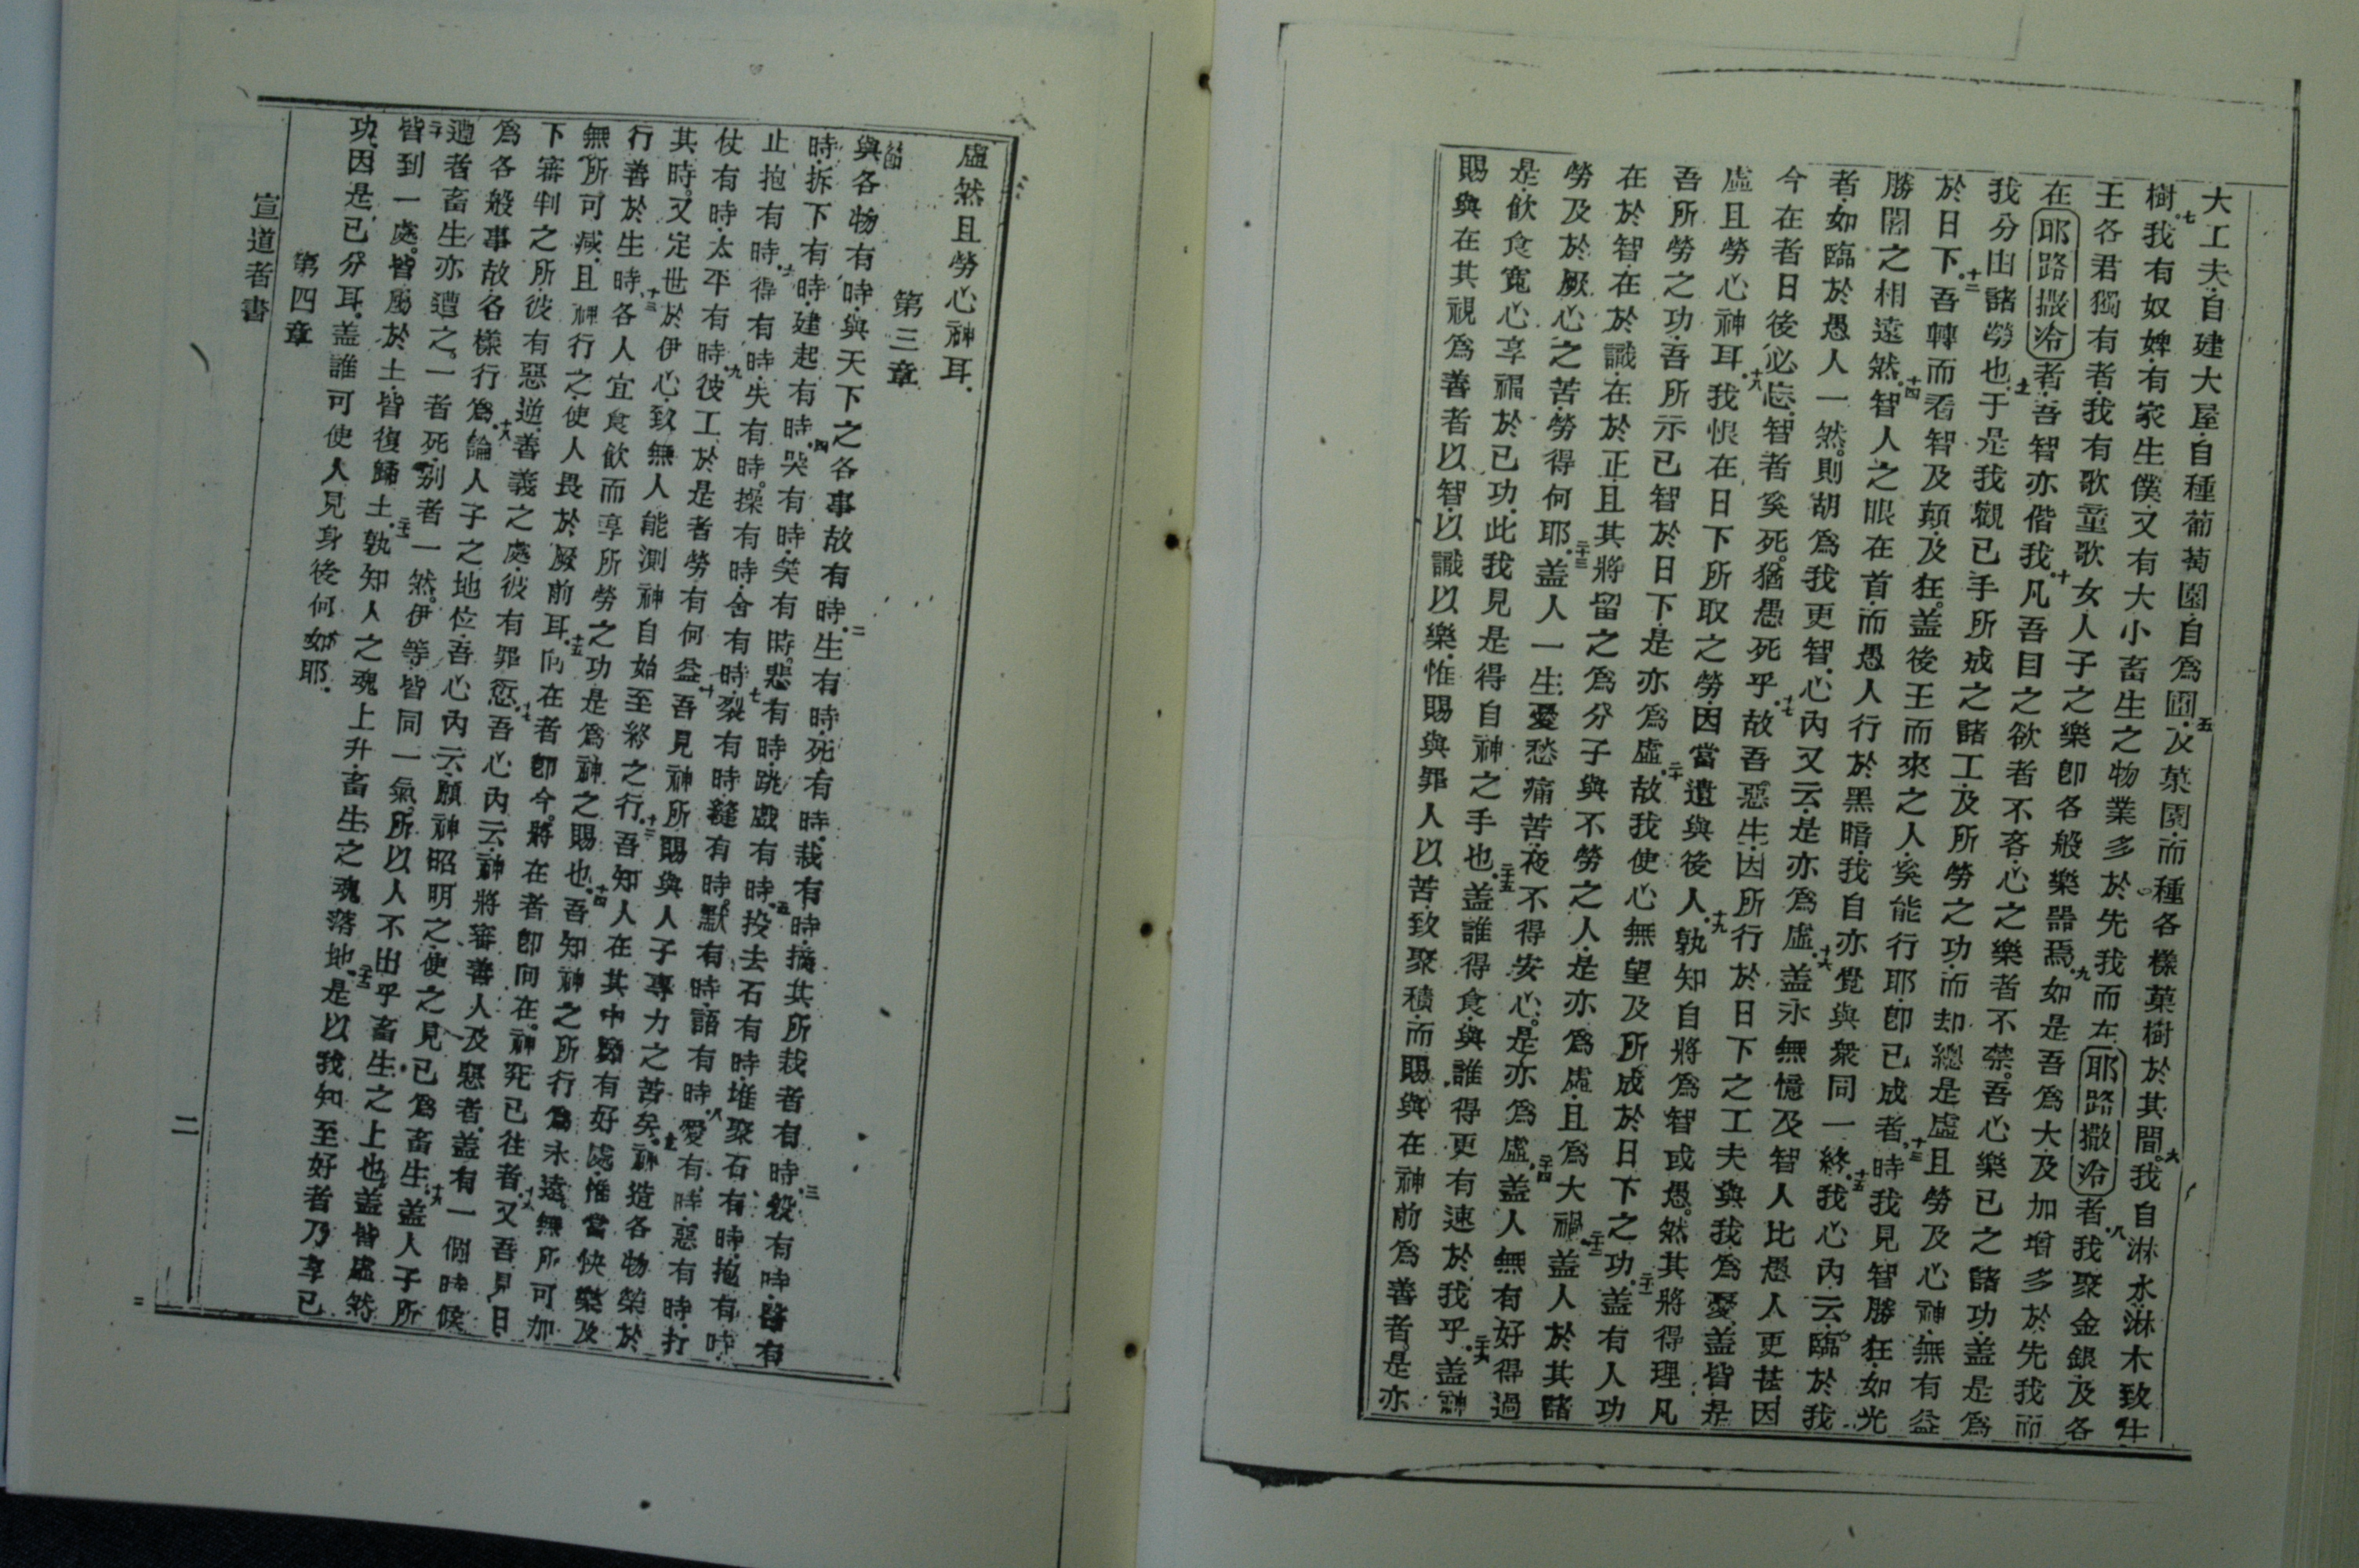 大工夫自建大屋自種葡萄園自爲囿五及菓園而種各樣菓樹於其間六我自淋水淋木致生
樹七我有奴婢有家生僕又有大小畜生之物業多於先我而在耶路撒冷者八我聚金銀及各
王各君獨有者我有歌童歌女人子之樂卽各般樂器焉九如是吾爲大及加增多於先我而
在耶路撒冷者吾智亦偕我十凡吾目之欲者不吝心之樂者不禁吾心樂已之諸功盖是爲
我分由諸勞也十一于是我觀已手所成之諸工及所勞之功而却總是虛且勞及心神無有益
於日下十二吾轉而看智及顛及狂盖後王而來之人奚能行耶卽已成者十三時我見智勝狂如光
勝闇之相遠然十四智人之眼在首而愚人行於黑暗我自亦覺與衆同一終十五我心內云臨於我
者如臨於愚人一然則胡爲我更智心內又云是亦爲虛十六盖永無憶及智人比愚人更甚因
今在者日後必忘智者奚死猶愚死乎十七故吾惡生因所行於日下之工夫與我爲憂盖皆是
虛且勞心神耳十八我恨在日下所取之勞因當遺與後人十九孰知自將爲智或愚然其將得理凡
吾所勞之功吾所示已智於日下是亦爲虛二十故我使心無望及所成於日下之功二十一盖有人功
在於智在於識在於正且其將留之爲分子與不勞之人是亦爲虛且爲大禍二十二盖人於其諸
勞及於厥心之苦勞得何耶二十三盖人一生憂愁痛苦夜不得安心是亦爲虛二十四盖人無有好得過
是飲食寬心享福於已功此我見是得自神之手也二十五盖誰得食與誰得更有速於我乎二十六盖神
賜與在其視爲善者以智以識以樂惟賜與罪人以苦致聚積而賜與在神前爲善者是亦
虛然且勞心神耳
第三章
節與各物有時與天下之各事故有時二生有時死有時栽有時摘其所栽者有時三殺有時醫有
時拆下有時建起有時四哭有時笑有時悲有時跳戲有時五投去石有時堆聚石有時抱有時
止抱有時六得有時失有時操有時舍有時七裂有時縫有時默有時語有時八愛有時惡有時打
仗有時太平有時九彼工於是者勞有何益十吾見神所賜與人子專力之苦矣十一神造各物榮於
其時又定世於伊心致無人能測神自始至終之行十二吾知人在其中無有好處惟當快樂及
行善於生時十三各人宜食飲而享所勞之功是爲神之賜也十四吾知神之所行爲永遠無所可加
無所可減且神行之使人畏於厥前耳十五向在者卽今將在者卽向在神究已往者十六又吾見日
下審判之所彼有惡逆善義之處彼有罪愆十七吾心內云神將審善人及惡者盖有一個時候
爲各般事故各樣行爲十八論人子之地位吾心內云願神昭明之使之見已爲畜生十九盖人子所
遭者畜生亦遭之一者死別者一然伊等皆同一氣所以人不出乎畜生之上也盖皆虛然
二十皆到一處皆屬於土皆復歸土二十一孰知人之魂上升畜生之魂落地二十二是以我知至好者乃享已
功因是已分耳盖誰可使人見身後何如耶
第四章
宣道者書
二